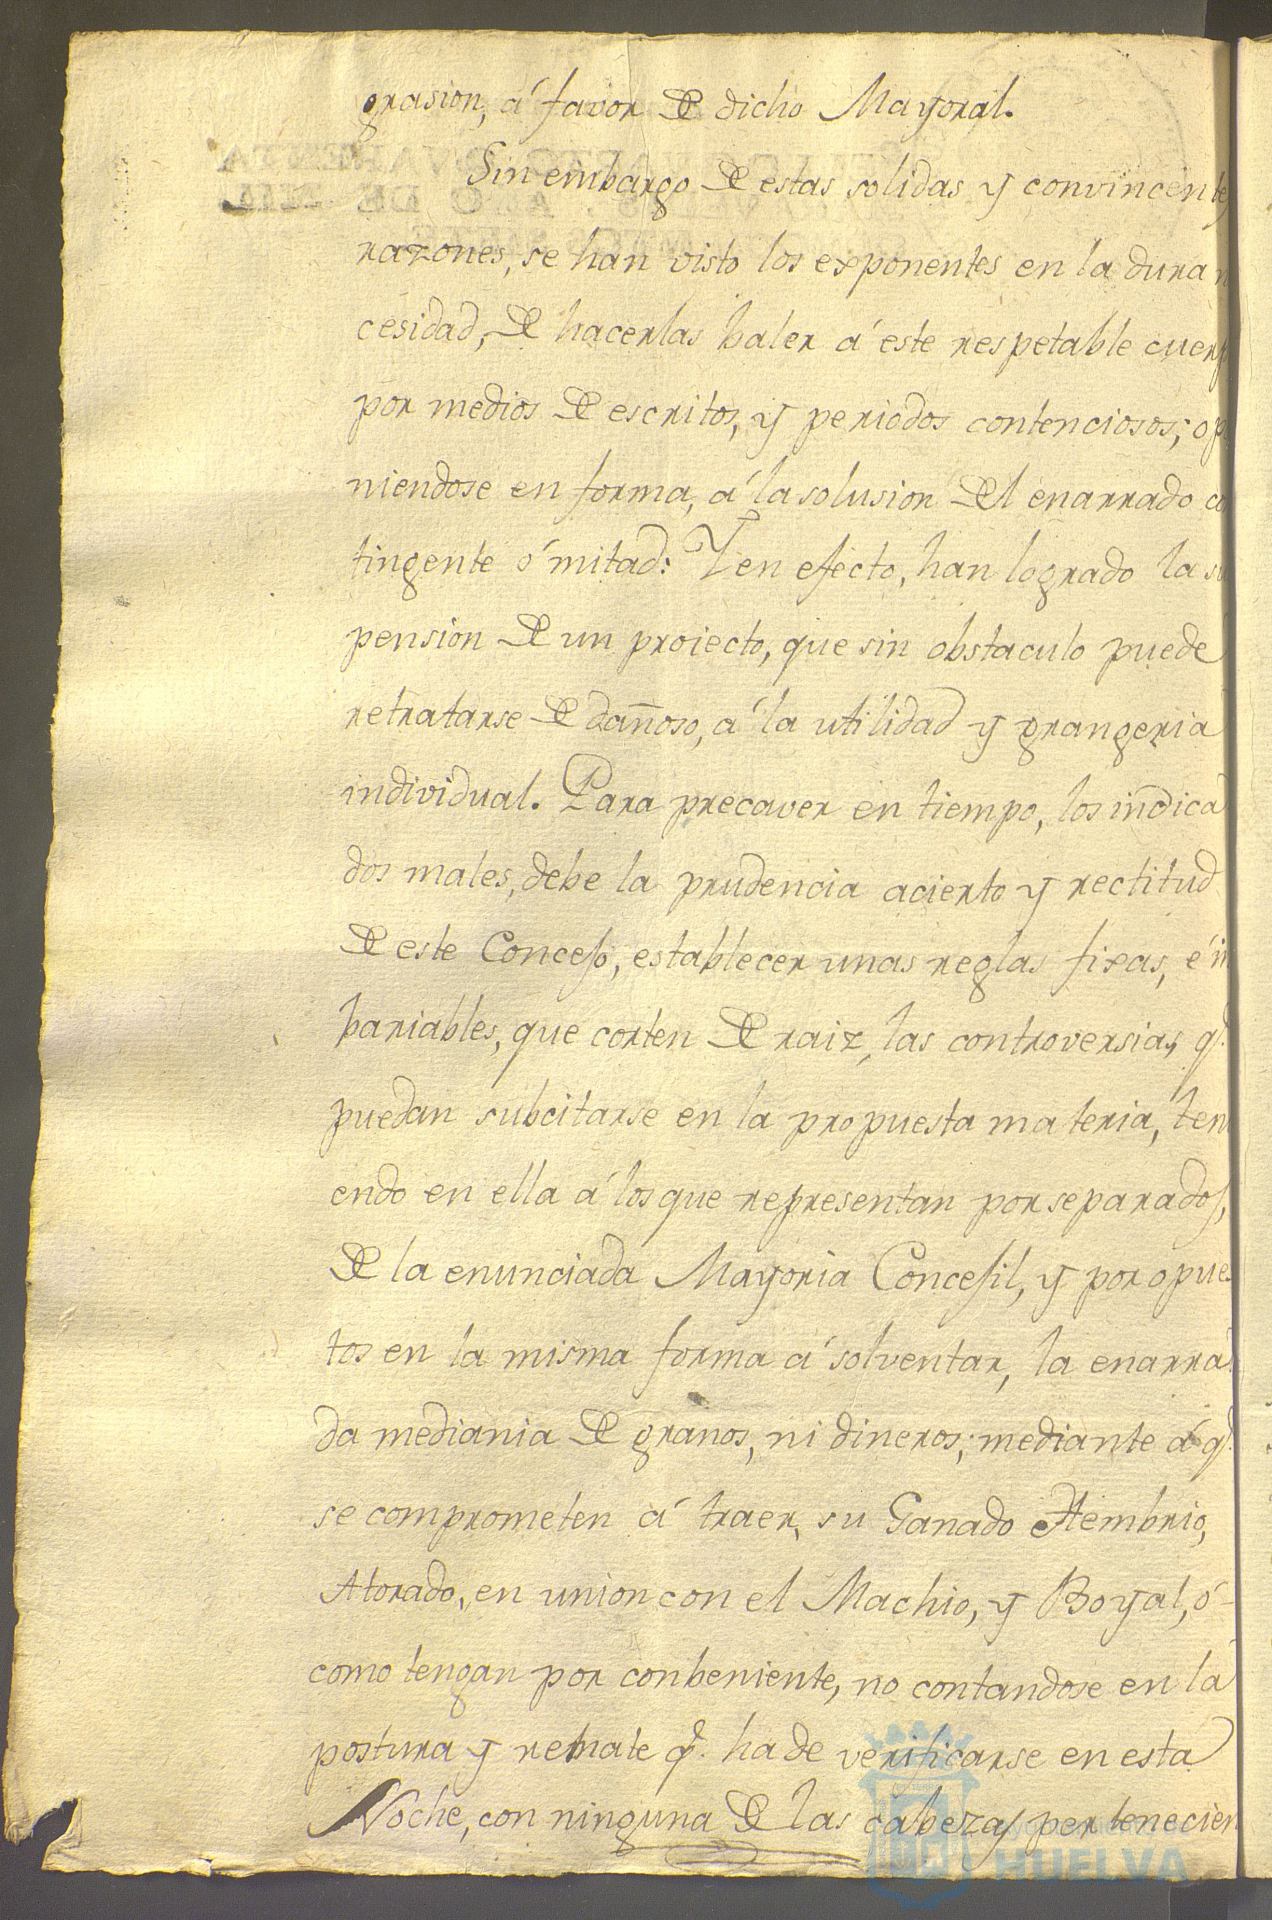 grasion, á favor de dicho Mayoral.
Sin embargo de estas solidas y convincentes
razones, se han visto los exponentes en la dura n
cesidad, de hacerlas baler á este respetable cuerp
por medios de escritos, y periodos contenciosos; opo
niendose en forma, á la solusion del enarrado co
tingente ó mitad: Y en efecto, han logrado la su
pension de un proiecto, que sin obstaculo puede
retratarse de dañoso, á la utilidad y grangeria
individual. Para precaver en tiempo, los indica
dos males, debe la prudencia acierto y rectitud
de este Concejo, establecer unas reglas fixas, é in
bariables, que corten de raiz, las controversias, q.
puedan subcitarse en la propuesta materia, ten
endo en ella á los que representan por separados,
de la enunciada Mayoria Concejil, y por opue
tos en la misma forma á solventar, la enarra
da mediania de granos, ni dineros; mediante á q.
se comprometen á traer, su Ganado Hembrio,
Atorado, en union con el Machio, y Boyal, ó
como tengan por conbeniente, no contandose en la
postura y remate q. ha de verificarse en esta
Noche, con ninguna de las cabezas pertenecien
HUELVA